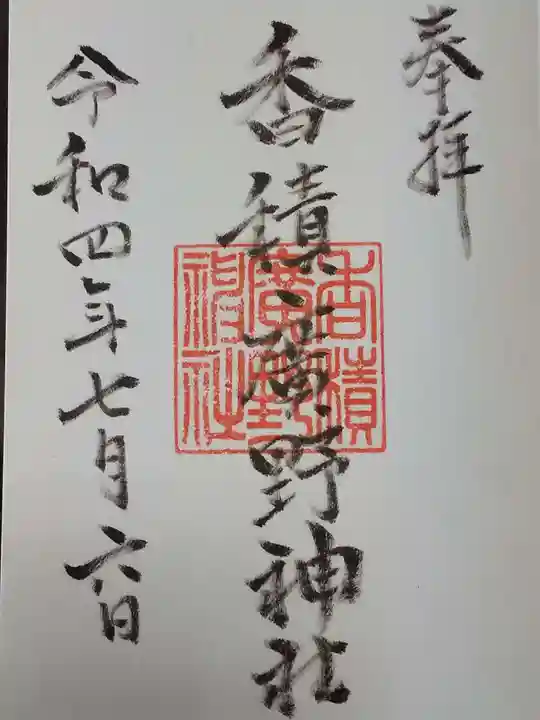 奉拝
香積廣野神社
香積
廣野
神社
令和四年七月六日